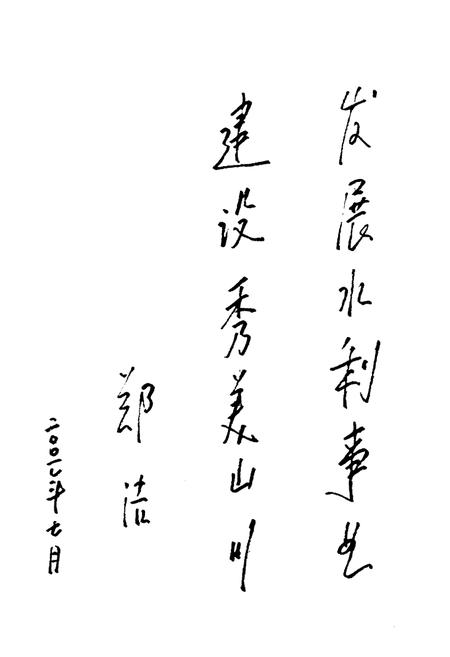 发展水利事业
建设秀美山川
郑洁
二〇〇七年七月